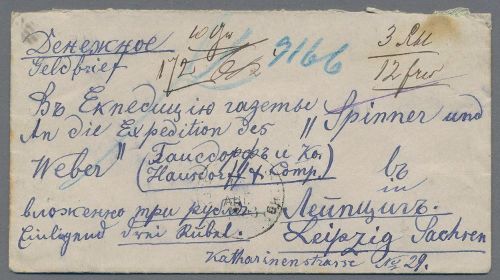 Денежное
Geldbrief
172
9166
3 Rbl
12 frw
Въ Експедицію газеты
An die Expedition des "Spinner und
Weber"
(Гаусдорфъ и Ко.
Hausdorff & Comp.)
въ
in
вложенно три рубля
Лейпцигъ.
Einliegend drei Rubel.
Leipzig Sachsen
Katharinenstrasse № 29.